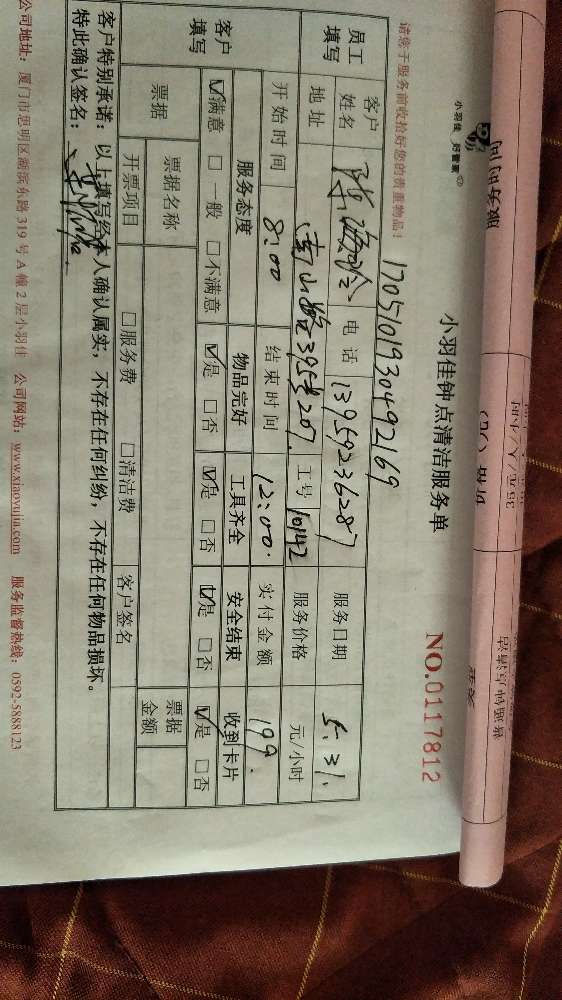 小羽佳 好管家
小羽佳钟点清洁服务单
NO.0117812
请您于服务前收拾好您的贵重物品！
1705101930492169
员工填写
客户姓名
电话
13959236287
服务日期
5.31
地址
南山路395号207
工号
10142
服务价格
元/小时
开始时间
8:00
结束时间
12:00
实付金额
199.
客户填写
服务态度
物品完好
工具齐全
安全结束
收到卡片
☑满意 □一般 □不满意
☑是 □否
☑是 □否
☑是 □否
☑是 □否
票据
票据名称
票据金额
开票项目
□服务费 □清洁费
客户签名
客户特别承诺：以上填写经本人确认属实，不存在任何纠纷，不存在任何物品损坏。
特此确认签名：
公司地址：厦门市思明区湖滨东路319号A幢2层小羽佳 公司网站：www.xiaoyujia.com 服务监督热线：0592-5888123
服务时间